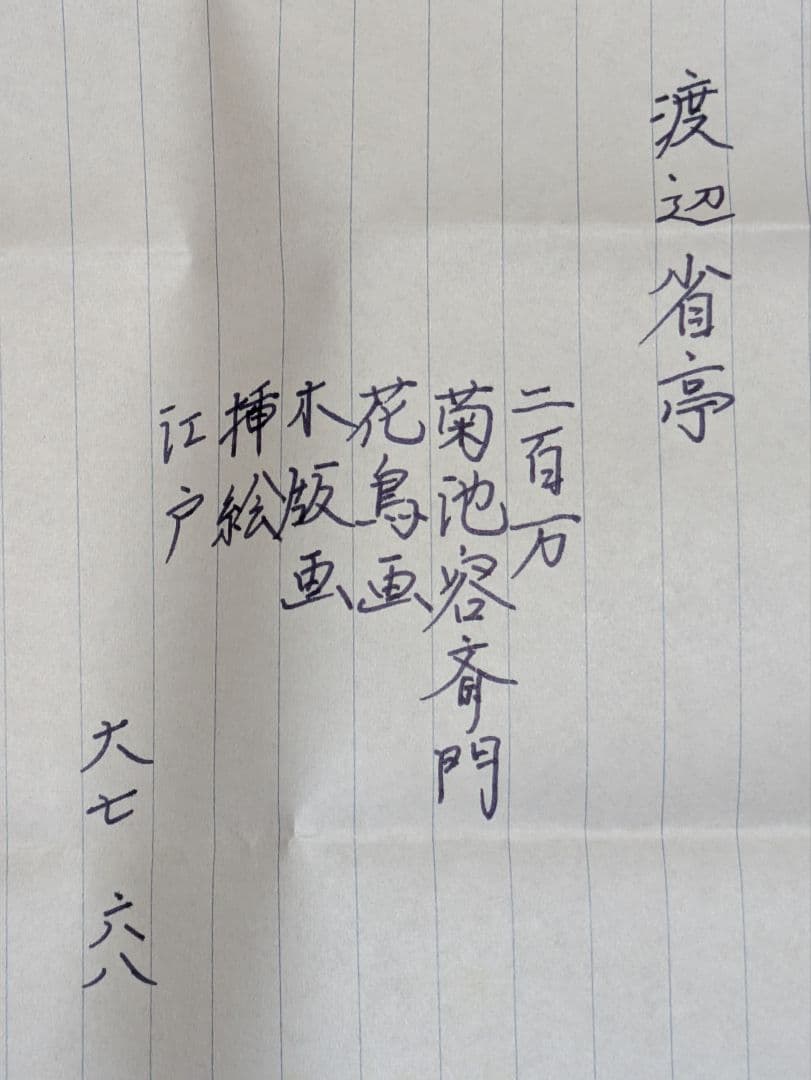 渡辺省亭
二百万
菊池容斎門
花鳥画
木版画
挿絵
江戸
大七 六八